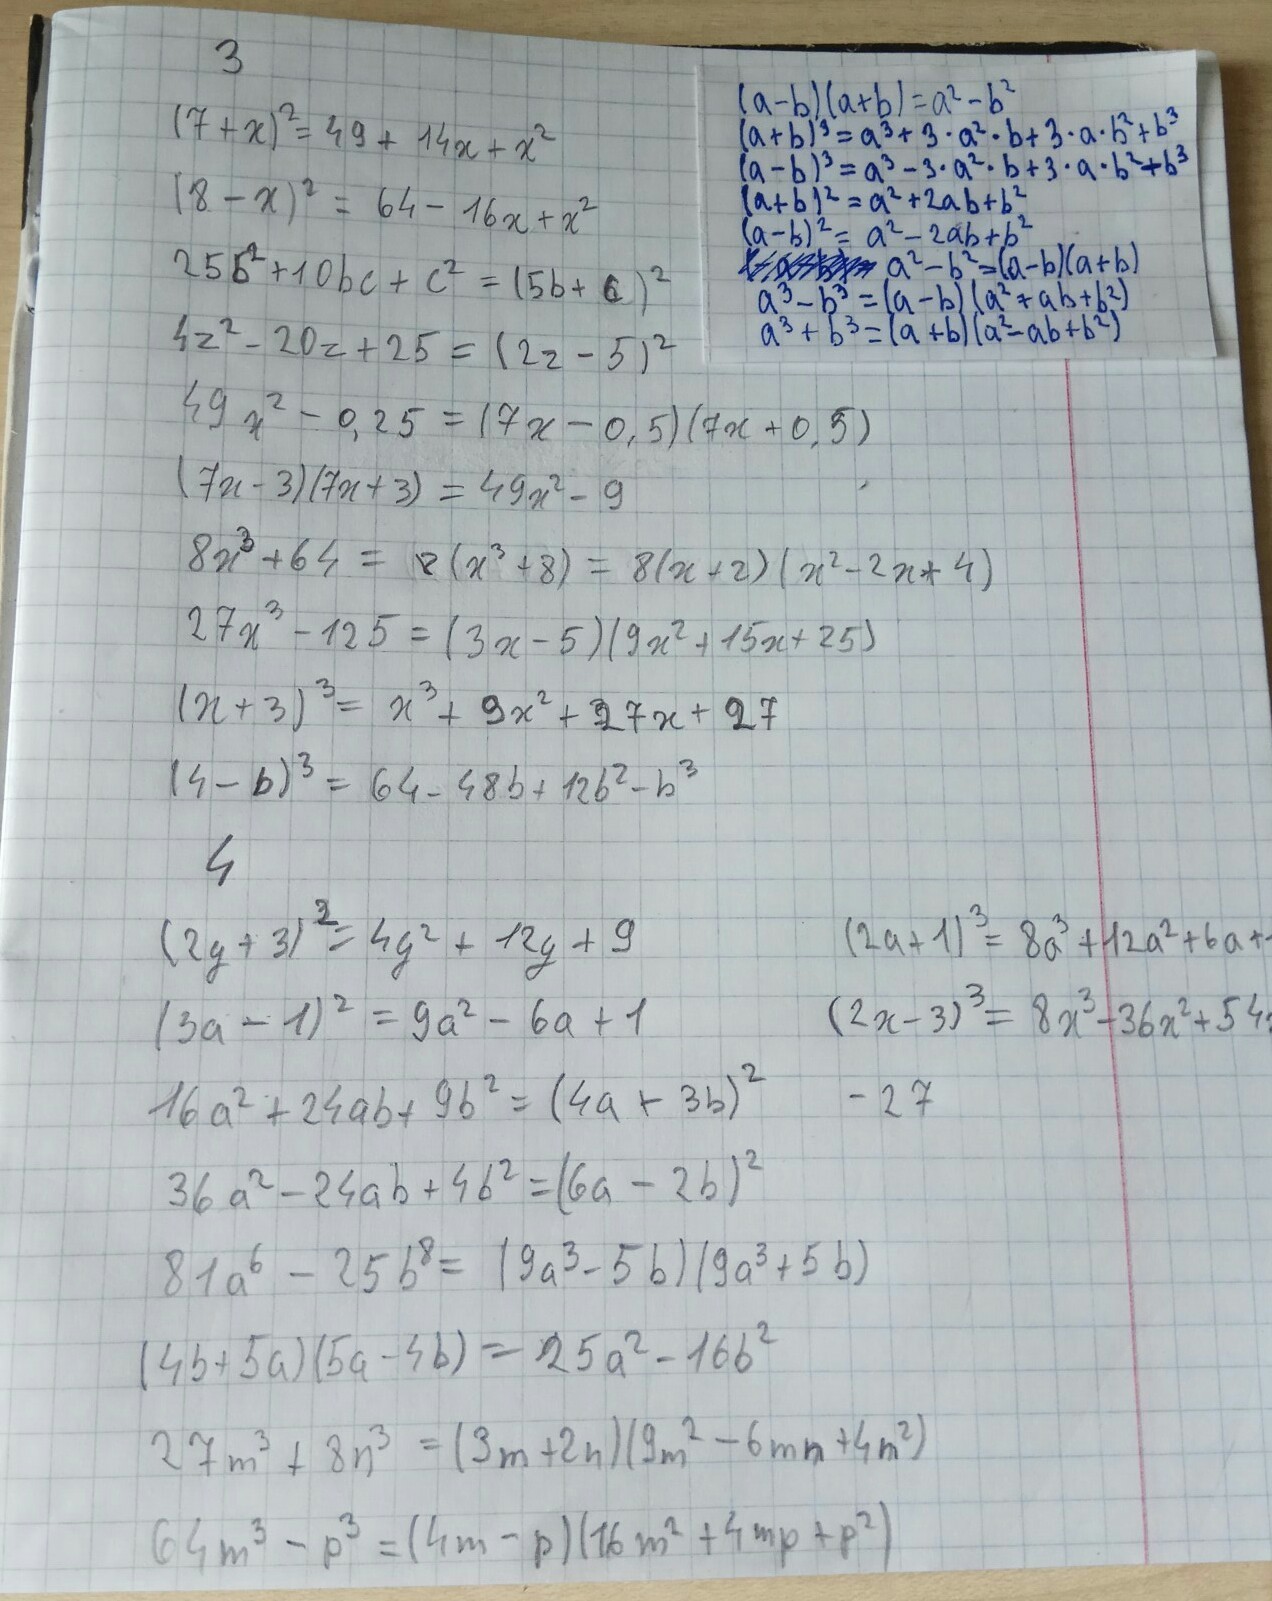 3
(7+x)²=49+14x+x²
(8-x)²=64-16x+x²
25b²+10bc+c²=(5b+c)²
4z²-20z+25=(2z-5)²
49x²-0,25=(7x-0,5)(7x+0,5)
(7x-3)(7x+3)=49x²-9
8x³+64=8(x³+8)=8(x+2)(x²-2x+4)
27x³-125=(3x-5)(9x²+15x+25)
(x+3)³=x³+9x²+27x+27
(4-b)³=64-48b+12b²-b³
(a-b)(a+b)=a²-b²
(a+b)³=a³+3·a²·b+3·a·b²+b³
(a-b)³=a³-3·a²·b+3·a·b²+b³
(a+b)²=a²+2ab+b²
(a-b)²=a²-2ab+b²
a²-b²=(a-b)(a+b)
a³-b³=(a-b)(a²+ab+b²)
a³+b³=(a+b)(a²-ab+b²)
4
(2y+3)²=4y²+12y+9
(3a-1)²=9a²-6a+1
16a²+24ab+9b²=(4a+3b)²
36a²-24ab+4b²=(6a-2b)²
81a⁶-25b⁸=(9a³-5b)(9a³+5b)
(4b+5a)(5a-4b)=25a²-16b²
27m³+8n³=(3m+2n)(9m²-6mn+4m²)
64m³-p³=(4m-p)(16m²+4mp+p²)
(2a+1)³=8a³+12a²+6a+
(2x-3)³=8x³-36x²+54
-27